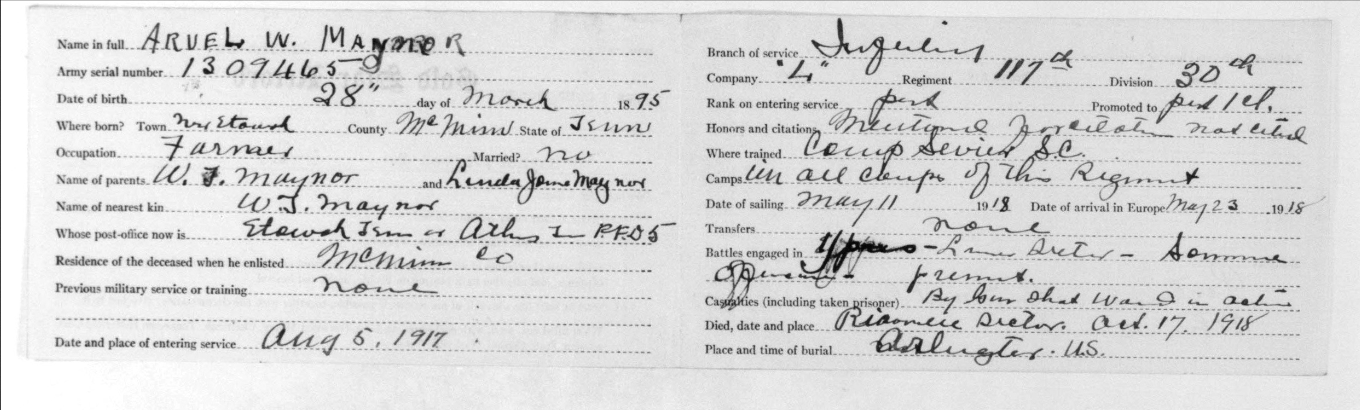 Name in full ARVEL W. MAYNOR
Army serial number 1309465
Date of birth 28" day of March 1895
Where born? Town Nr Etowah County McMinn State of Tenn
Occupation Farmer Married? no
Name of parents W. T. Maynor and Linda Jane Maynor
Name of nearest kin W. T. Maynor
Whose post-office now is Etowah Tenn or Athens Tn R.F.D 5
Residence of the deceased when he enlisted McMinn Co
Previous military service or training none
Date and place of entering service Aug 5, 1917
Branch of service Infantry
Company "L" Regiment 117th Division 30th
Rank on entering service pvt Promoted to pvt 1 cl.
Honors and citations Mentioned for citation not cited
Where trained Camp Sevier S.C.
Camps in all camps of this Regiment
Date of sailing May 11 1918 Date of arrival in Europe May 23 1918
Transfers none
Battles engaged in Ypres - Sector - Somme
offensive -
Casualties (including taken prisoner) By Gun Shot Wound in action
Died, date and place Sector. Oct. 17, 1918
Place and time of burial Arlington. U.S.